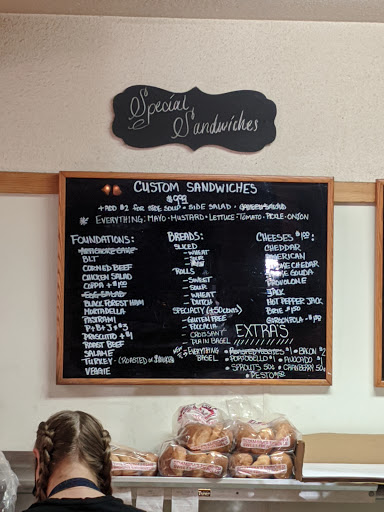 Special
Sandwiches
CUSTOM SANDWICHES
+ ADD $2 FOR SIDE SOUP • SIDE SALAD •
EVERYTHING: MAYO • MUSTARD • LETTUCE • TOMATO • PICKLE • ONION
FOUNDATIONS:
BLT
CORNED BEEF
CHICKEN SALAD
COPPA + $1.00
EGG SALAD
BLACK FOREST HAM
MORTADELLA
PASTRAMI
P+B+J
PRISCUTTO + $1
ROAST BEEF
SALAME
TURKEY - (ROASTED OR
VEGGIE
BREADS:
SLICED
- WHEAT
- SOUR
ROLLS
- SWEET
- SOUR
- WHEAT
- DUTCH
SPECIALTY (+50 CENTS)
- GLUTEN FREE
- FOCCACIA
- CROISSANT
- PLAIN BAGEL
- EVERYTHING
BAGEL
CHEESES
CHEDDAR
AMERICAN
CHEDDAR
GOUDA
PROVOLONE
JACK
HOT PEPPER JACK
BRIE $1.00
GORGONZOLA • $1.00
EXTRA'S
• BACON $2
• PORTOBELLO $1 • AVOCADO $1
• SPROUTS 50¢ • CRANBERRY 50¢
• PESTO